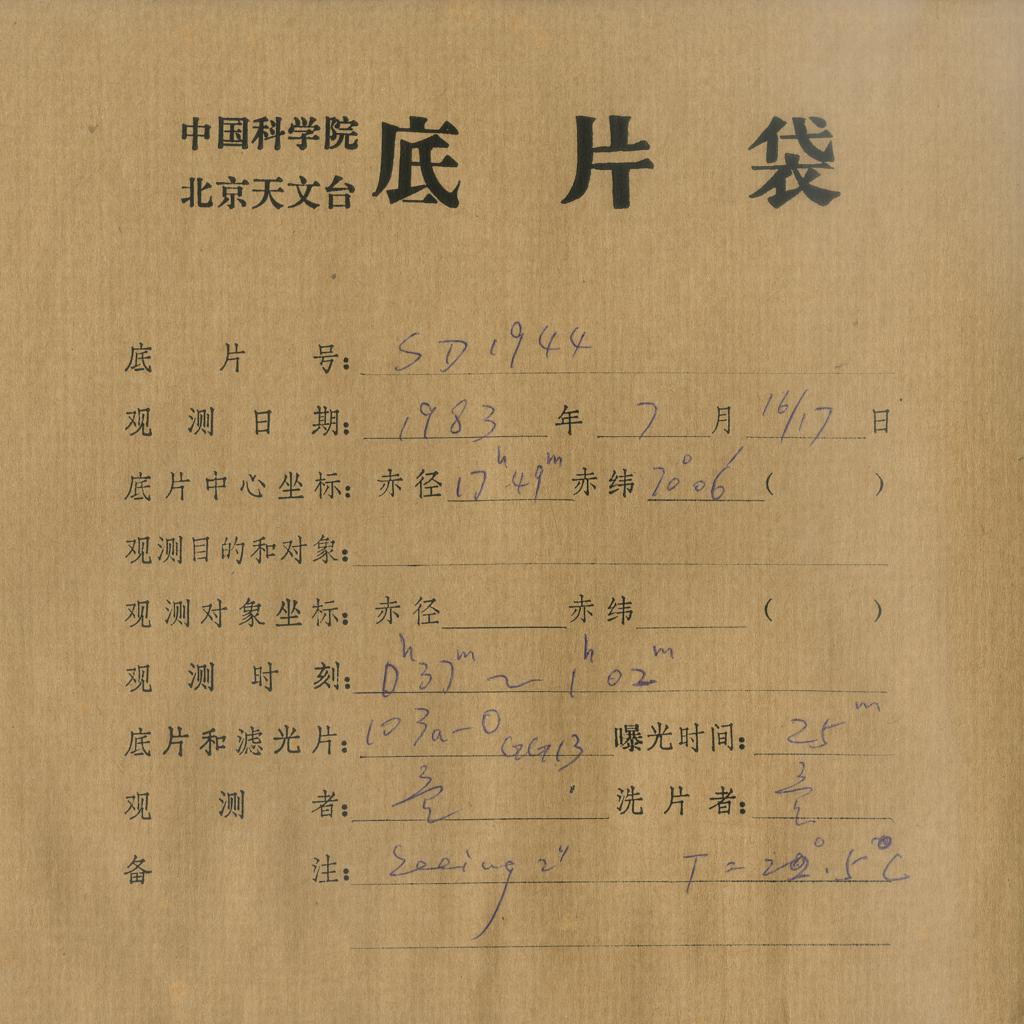 中国科学院
北京天文台
底片袋
底片号: SD1944
观测日期: 1983年7月16/17日
底片中心坐标: 赤径17ʰ49ᵐ赤纬70°06′( )
观测目的和对象:
观测对象坐标: 赤径 赤纬 ( )
观测时刻: 0ʰ37ᵐ~1ʰ02ᵐ
底片和滤光片: 103a-O GG13 曝光时间: 25ᵐ
观测者: 洗片者:
备注: Seeing 2" T=22°.5°C